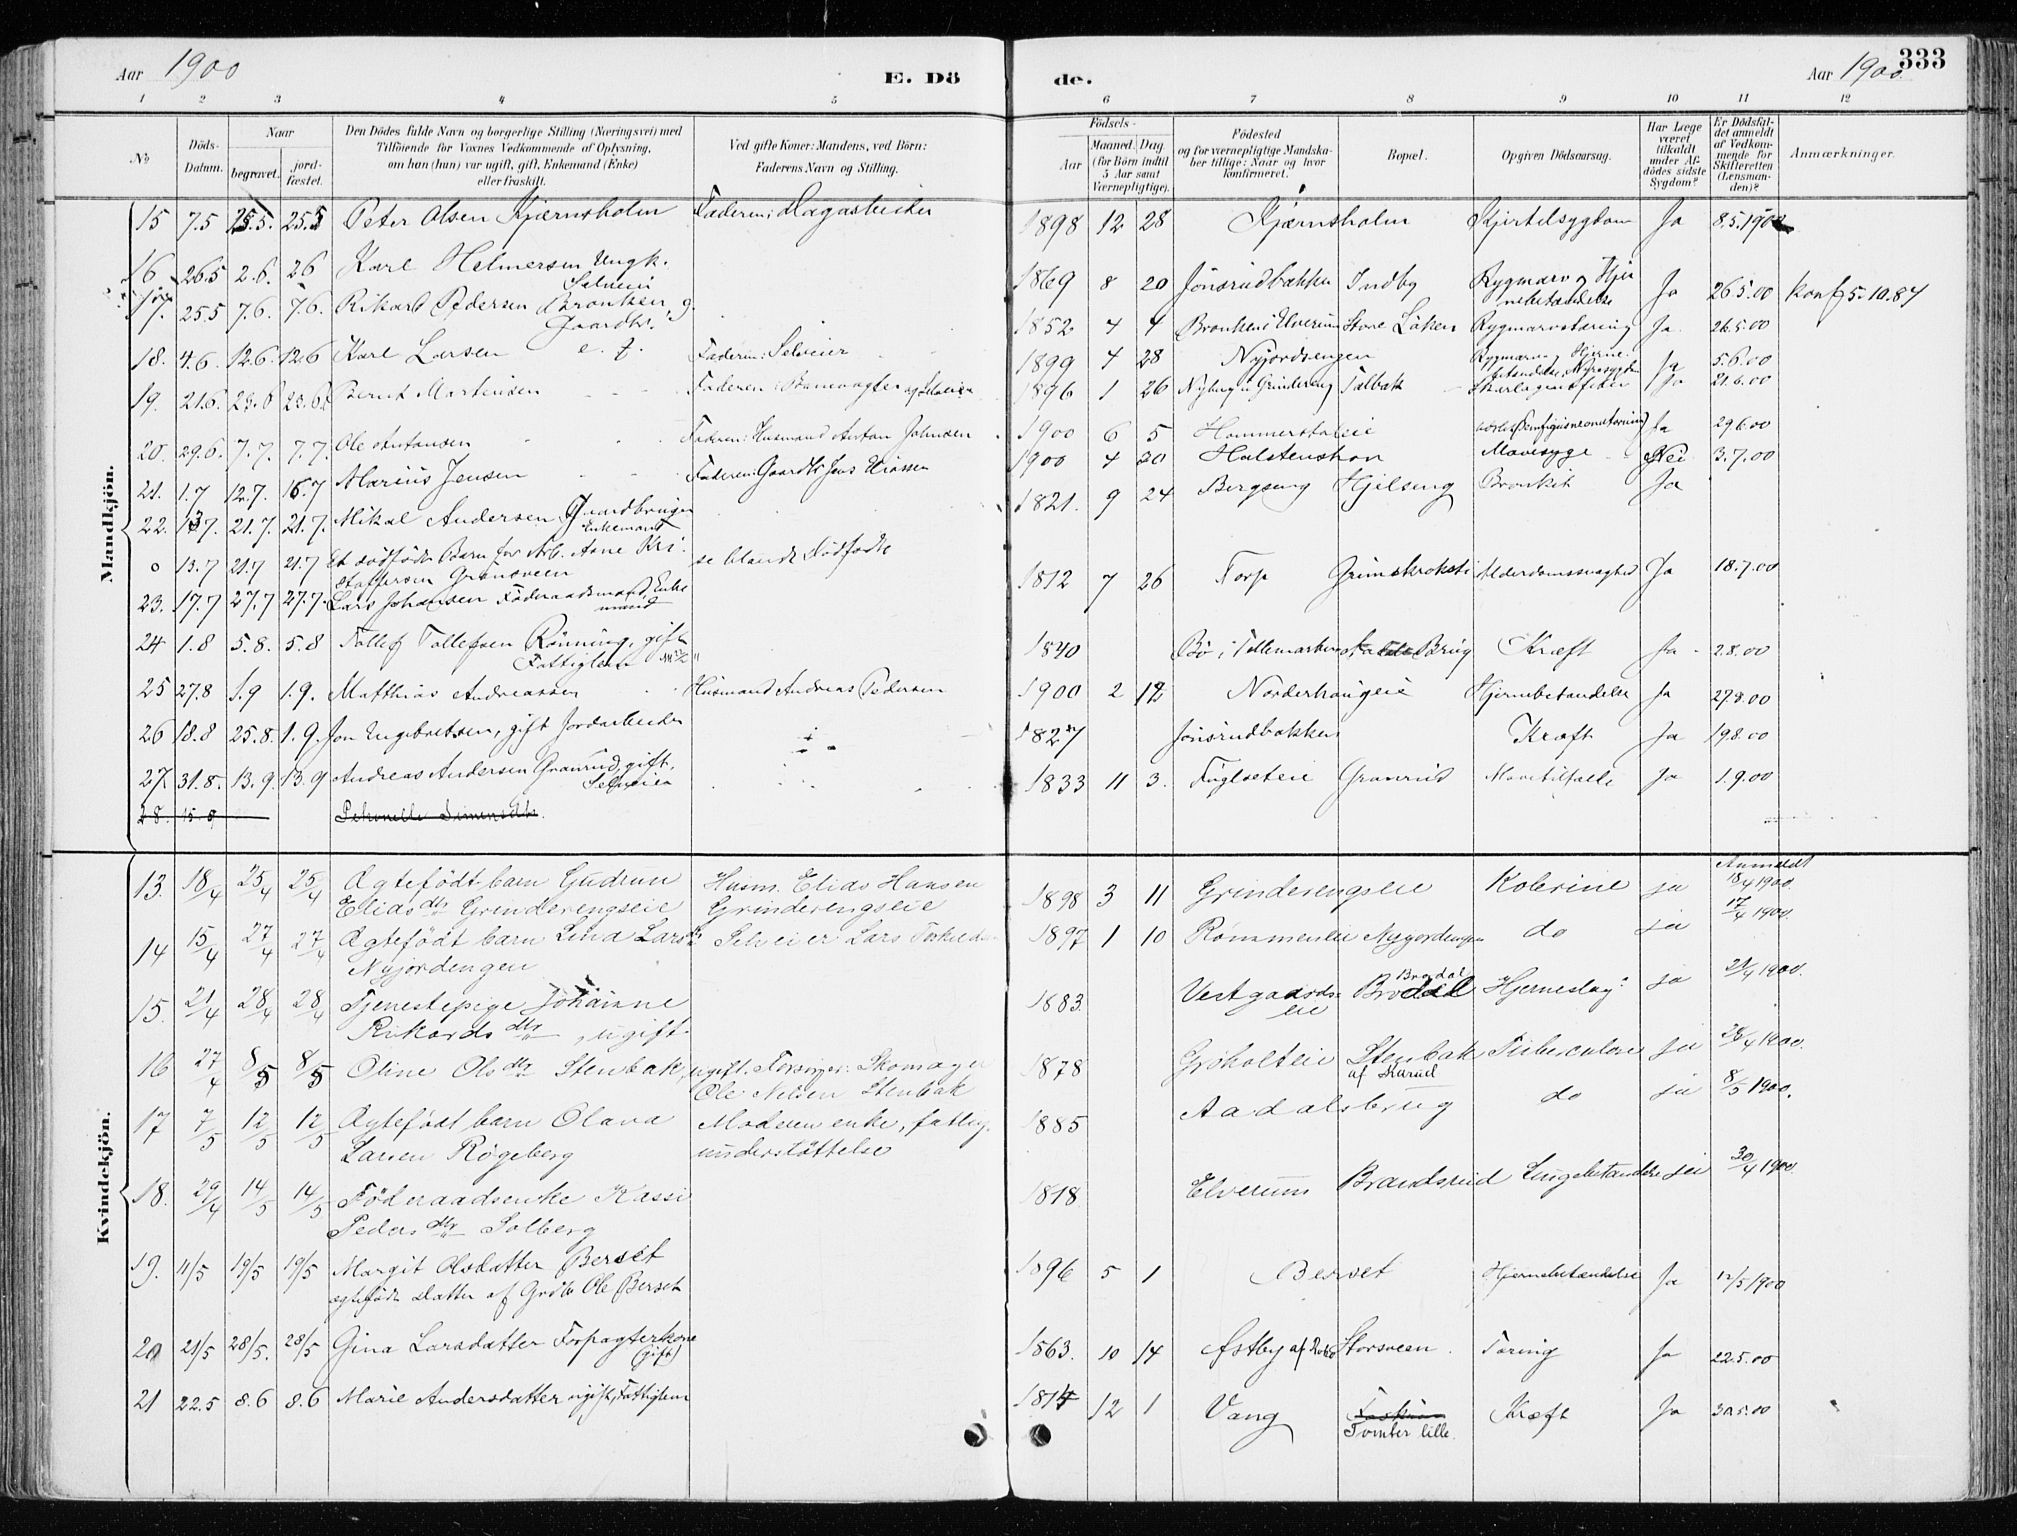 Aar 1900
E. Dö
de.
Aar 1900.
333
1 2 3 4 5 6 7 8 9 10 11 12
No
Döds-
Datum.
Naar
begravet.
jord-
fæstet.
Den Dödes fulde Navn og borgerlige Stilling (Næringsvei) med
Tilföiende for Voxnes Vedkommende af Oplysning,
om han (hun) var ugift, gift, Enkemand (Enke)
eller fraskilt.
Ved gifte Koner: Mandens, ved Börn:
Faderens Navn og Stilling.
Födsels-
Aar
Maaned.
Dag.
(for Börn indtil
5 Aar samt
Værnepligtige).
Födested
og for værnepligtige Mandska-
ber tillige: Naar og hvor
konfirmeret.
Bopæl.
Opgiven Dödsaarsag.
Har Læge
været
tilkaldt
under Af-
dödes sidste
Sygdom?
Er Dödsfal-
det anmeldt
af Vedkom-
mende for
Skifteretten
(Lensman-
den)?
Anmærkninger.
Mandkjön.
15 7.5 25.5. 25.5 Peter Olsen Kjernsholm Faderen: Dagarbeider 1898 12 28 Kjernsholm Kjertelsygdom Ja 8.5.1900
16 26.5 2.6. 2.6 Karl Helmersen Ungk. 1869 8 20 Jönsrudbakken Indby Rygmarv og Hjer Ja 26.5.00 konf 5.10.84
Selveier
nebetændelse
17. 25.5 7.6. 7.6. Rikard Pedersen Bronken, g. 1852 4 4 Bronken i Elverum Store Löken Rygmarvstæring Ja 26.5.00
Gaardbr.
18. 4.6. 12.6. 12.6 Karl Larsen e. f. Faderen: Selveier 1899 4 28 Nyjordsengen Rygmarv og Hjerne- Ja 5.6.00
betændelse, Nyresygdom
19. 21.6. 23.6 23.6. Bernt Martinsen Faderen: Banevogter og Selveier 1896 1 26 Nyberg i Grindereng Talbak Skarlagensfeber Ja 21.6.00
20. 29.6. 7.7. 7.7. Ole Antonsen Faderen: Husmand Anton Johnsen 1900 6 5 Hommerstadeie Ja 29.6.00
21. 1.7 12.7. 16.7 Marius Jensen Faderen: Gaardbr. Jens 1900 4 20 Halstenshov Mavesyge Nei 3.7.00
22. 13.7. 21.7. 21.7. Mikal Andersen Gaardbruger 1821. 9 24 Bergseng Hjelseng Bronkit Ja
Enkemand
0 13.7 21.7 21.7 Et dødfødt Barn for Arb. Arne Kri- se blandt Dödfødte
stoffersen Grönsveen
23. 17.7 27.7 27.7. Lars Johansen Föderaadsmand, Enke 1812 7 26 Torp Grimskroksti Alderdomssvaghed Ja 18.7.00
mand
24 1.8 5.8. 5.8 Tollef Tollefsen Rönning, gift 1840 Bö i Tellemarken Brug Kræft Ja. 2.8.00
Fattiglem
25 27.8 1.9 1.9. Matthias Andreassen Husmand Andreas Pedersen 1900 2 12 Norderhaugeie Hjernebetændelse Ja 27.8.00
26 18.8 25.8. 1.9. Jon Engebretsen, gift Jordarbeider 1827 Jönsrudbakken Kræft Ja 19.8.00
27. 31.8. 13.9. 13.9 Andreas Andersen Granrud, gift, 1833 11 3. Fuglseteie Granrud Mavetilfælde Ja 1.9.00
Selveier
28. 15.9 Petronelle Simensdtr.
Kvindekjön.
13. 18/4 25/4 25/4 Ægtefödt barn Gudrun Husm. Elias Hansen 1898 3 11 Grinderengseie Kolerine ja Anmeldt 18/4 1900.
Elias dtr Grinderengseie Grinderengseie
14 15/4 27/4 27/4 Ægtefödt barn Lina Lars dtr Selveier Lars 1897 1 10 Rømmeneie Nyjordengen do ja 17/4 1900.
Nyjordengen
15. 21/4 28/4 28/4 Tjenestepige Johanne 1883. Vestgaards- Brodal Hjerneslag ja 21/4 1900.
Rikards dtr, ugift. eie Brodal
16 27/4 8/5 8/5 Oline Ols dtr Stenbak, ugift. Forsørger: Skomager 1878 Grøholteie Stenbak Tuberculose ja 28/4 1900.
Ole Nilsen Stenbak af Skarud
17 7/5 12/5 12/5 Ægtefödt barn Olava Moderen enke, fattig- 1885 Aadalsbrug do ja 8/5 1900.
Larsen Røgeberg understöttelse
18. 29/4 14/5 14/5 Föderaadsenke Kassi 1818 Elverum Brandsrud Lungebetændelse ja 30/4 1900
Peders dtr Solberg
19. 11/5 19/5 19/5 Margit Olsdatter Berset 1896 5 1 Berset Hjernebetændelse Ja 12/5 1900
ægtefödt Datter af Grdbr Ole Berset
20 21/5 28/5. 28/5 Gina Larsdatter Forpagterkone 1863. 10 14 Østby af Storsveen. Tæring Ja 22.5.00
(gift)
21 22.5 8.6 8.6 Marie Andersdatter ugift, Fattiglem 1814 12 1 Vang Kræft Ja 30.5.00
Tomter lille.